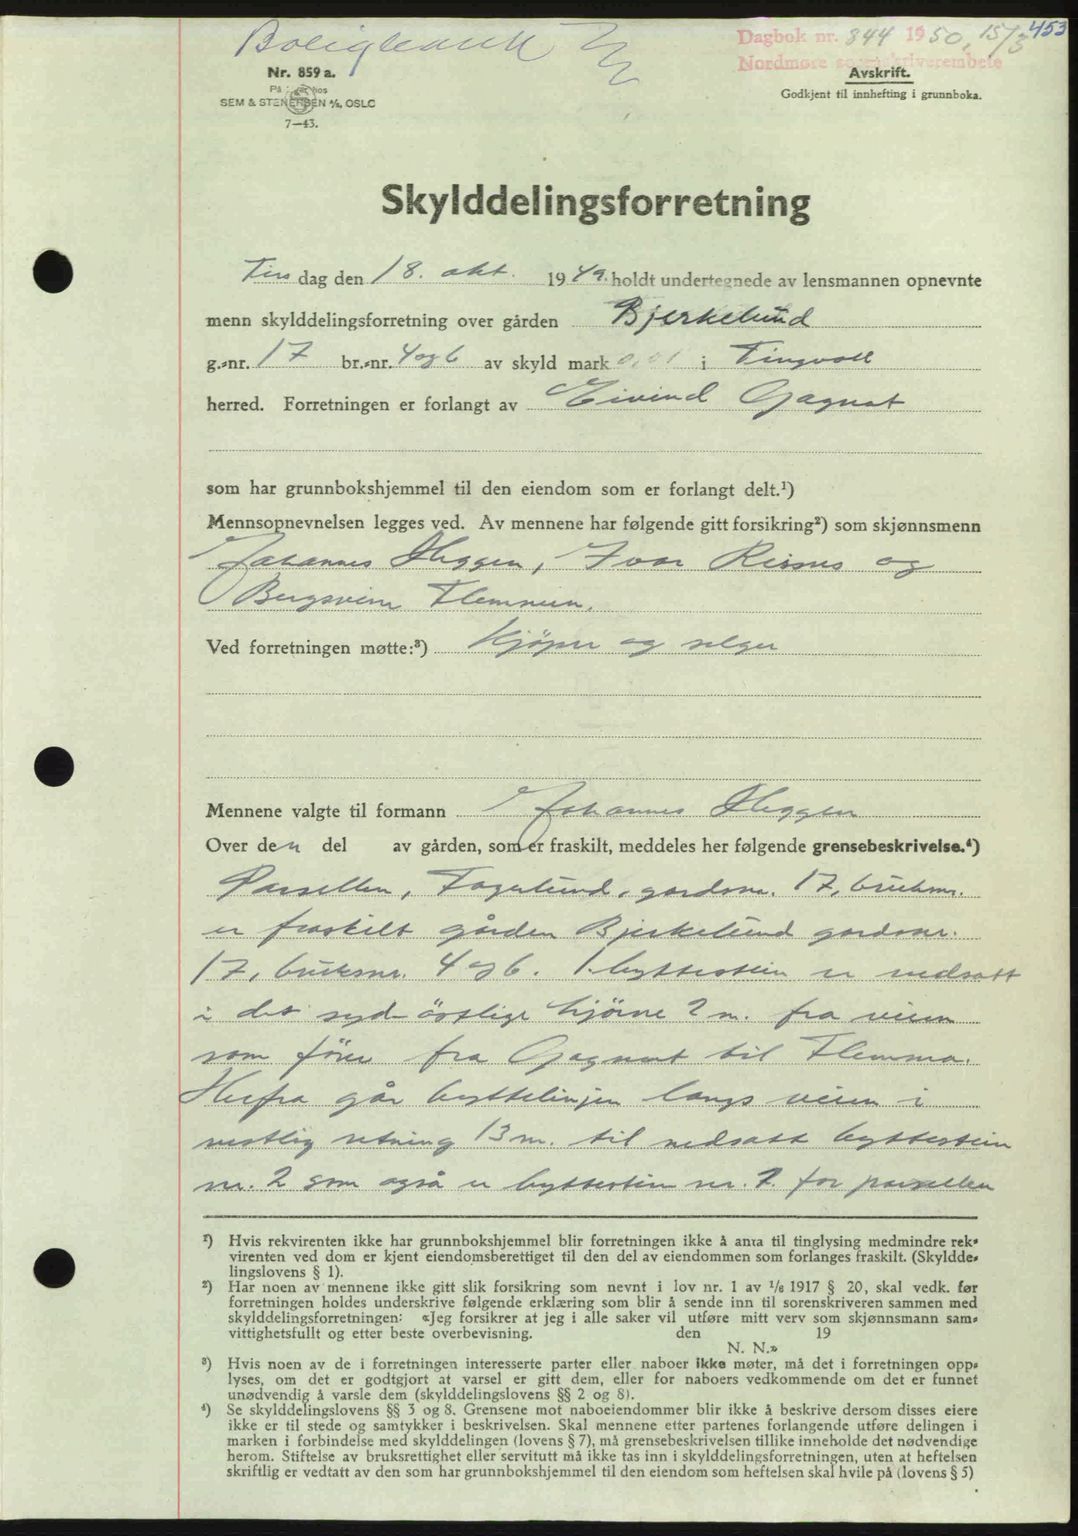 Boligbank
Dagbok nr. 844 1950, 15/3 453
Nordmøre sorenskriverembete
Nr. 859 a.
SEM & STENERSEN A/S, OSLO
7—43.
Avskrift.
Godkjent til innhefting i grunnboka.
Skylddelingsforretning
Tirsdag den 18. okt. 1949. holdt undertegnede av lensmannen opnevnte
menn skylddelingsforretning over gården Bjerkelund
g.-nr. 17 br.-nr. 4 og 6 av skyld mark 0,01 i Tingvoll
herred. Forretningen er forlangt av Eivind Gagnat
som har grunnbokshjemmel til den eiendom som er forlangt delt.¹)
Mennsopnevnelsen legges ved. Av mennene har følgende gitt forsikring²) som skjønnsmenn
Johannes Heggem, Ivar Risnes og
Bergsvein Flemmen.
Ved forretningen møtte:³) Kjöper og selger
Mennene valgte til formann Johannes Heggem
Over den del av gården, som er fraskilt, meddeles her følgende grensebeskrivelse.⁴)
Parsellen, Fagerlund, gardsnr. 17, bruksnr.
er fraskilt gården Bjerkelund gardsnr.
17, bruksnr. 4 og 6. 1. byttestein er nedsatt
i det syd-östlige hjörne 2 m. fra veien
som förer fra Gagnat til Flemma.
Herfra går byttelinjen langs veien i
vestlig retning 13 m. til nedsatt byttestein
nr. 2 som også er byttestein nr. 2. for parsellen
¹) Hvis rekvirenten ikke har grunnbokshjemmel blir forretningen ikke å anta til tinglysing medmindre rek-
virenten ved dom er kjent eiendomsberettiget til den del av eiendommen som forlanges fraskilt. (Skyldde-
lingslovens § 1).
²) Har noen av mennene ikke gitt slik forsikring som nevnt i lov nr. 1 av 1/6 1917 § 20, skal vedk. før
forretningen holdes underskrive følgende erklæring som blir å sende inn til sorenskriveren sammen med
skylddelingsforretningen: «Jeg forsikrer at jeg i alle saker vil utføre mitt verv som skjønnsmann sam-
vittighetsfullt og etter beste overbevisning. den 19
N. N.»
³) Hvis noen av de i forretningen interesserte parter eller naboer ikke møter, må det i forretningen opp-
lyses, om det er godtgjort at varsel er gitt dem, eller for naboers vedkommende om det er funnet
unødvendig å varsle dem (skylddelingslovens §§ 2 og 8).
⁴) Se skylddelingslovens §§ 3 og 8. Grensene mot naboeiendommer blir ikke å beskrive dersom disses eiere
ikke er til stede og samtykker i beskrivelsen. Skal mennene etter partenes forlangende utføre delingen i
marken i forbindelse med skylddelingen (lovens § 7), må grensebeskrivelsen tillike inneholde det nødvendige
herom. Stiftelse av bruksrettighet eller servitutt må ikke tas inn i skylddelingsforretningen, uten at heftelsen
skriftlig er vedtatt av den som har grunnbokshjemmel til den eiendom som heftelsen skal hvile på (lovens § 5)